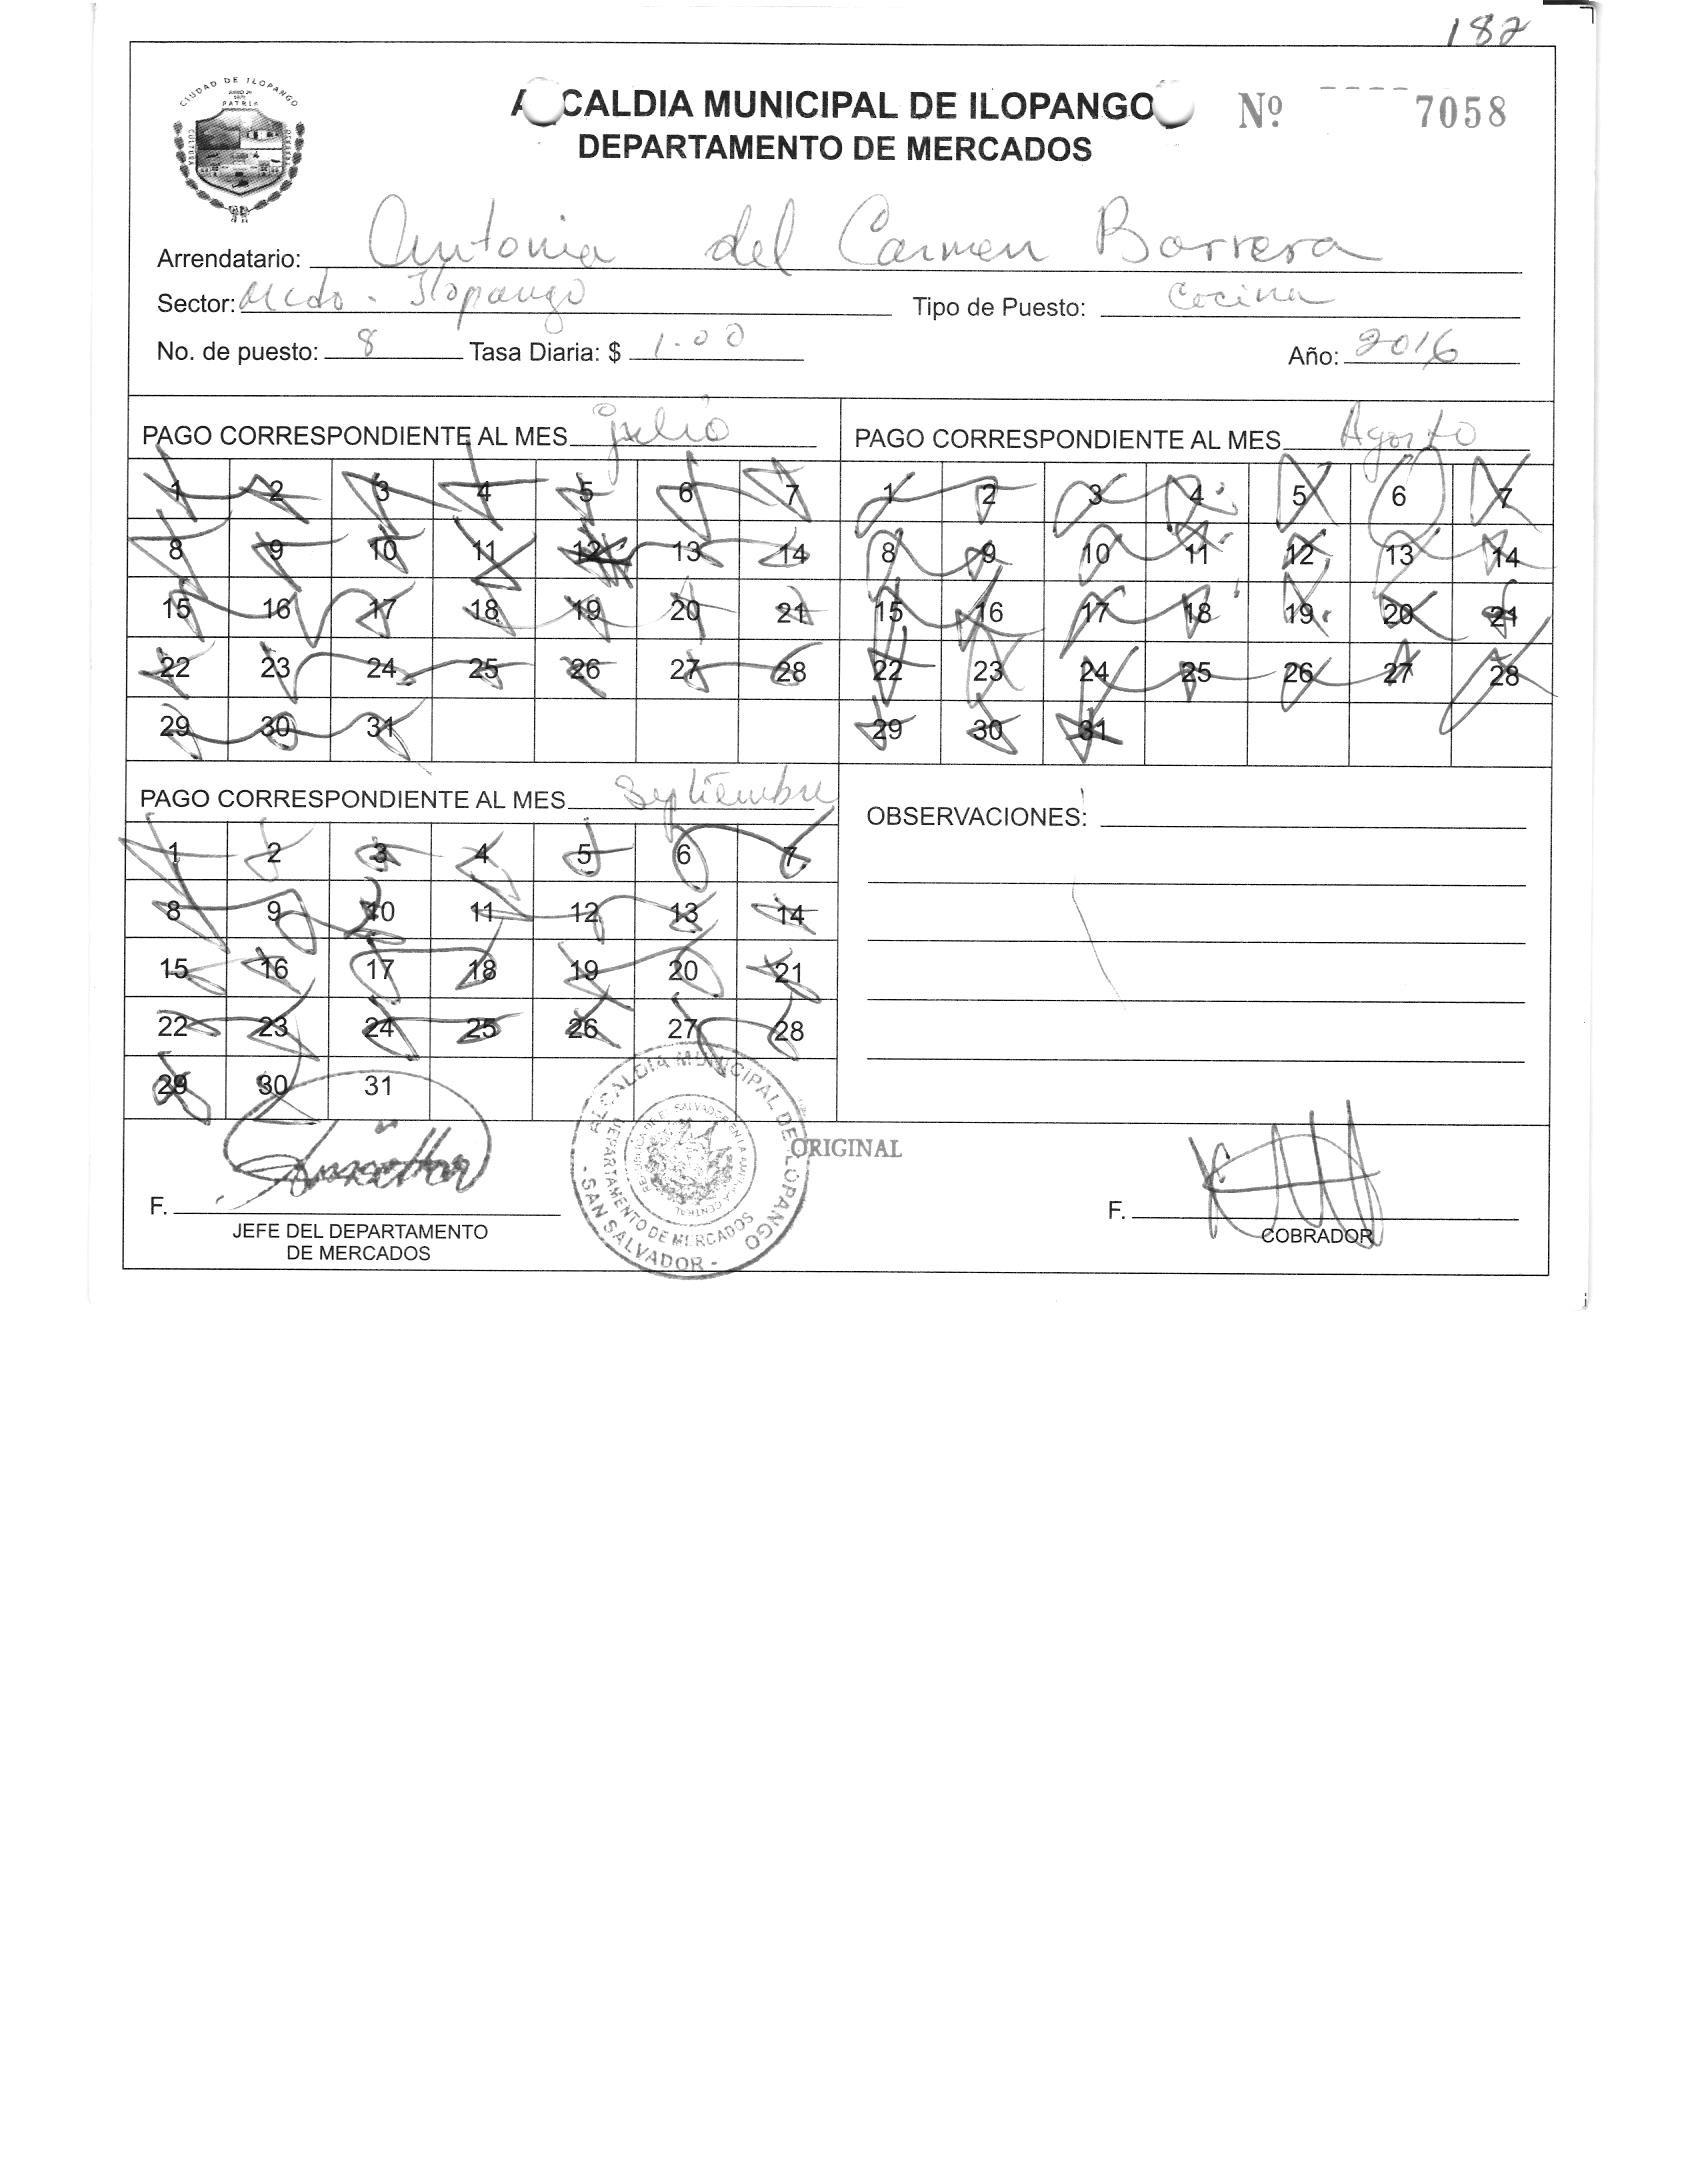 182
CIUDAD DE ILOPANGO
PATRIA
CULTURA
ALCALDIA MUNICIPAL DE ILOPANGO Nº 7058
DEPARTAMENTO DE MERCADOS
Arrendatario: Antonia del Carmen Barrera
Sector: Mcdo. Ilopango Tipo de Puesto: Cocina
No. de puesto: 8 Tasa Diaria: $ 1.00 Año: 2016
PAGO CORRESPONDIENTE AL MES julio
1 2 3 4 5 6 7
8 9 10 11 12 13 14
15 16 17 18 19 20 21
22 23 24 25 26 27 28
29 30 31
PAGO CORRESPONDIENTE AL MES Agosto
1 2 3 4 5 6 7
8 9 10 11 12 13 14
15 16 17 18 19 20 21
22 23 24 25 26 27 28
29 30 31
PAGO CORRESPONDIENTE AL MES Septiembre
1 2 3 4 5 6 7
8 9 10 11 12 13 14
15 16 17 18 19 20 21
22 23 24 25 26 27 28
29 30 31
OBSERVACIONES:
ALCALDIA MUNICIPAL DE ILOPANGO
- SAN SALVADOR -
DEPARTAMENTO DE MERCADOS
ORIGINAL
F.
JEFE DEL DEPARTAMENTO
DE MERCADOS
F.
COBRADOR